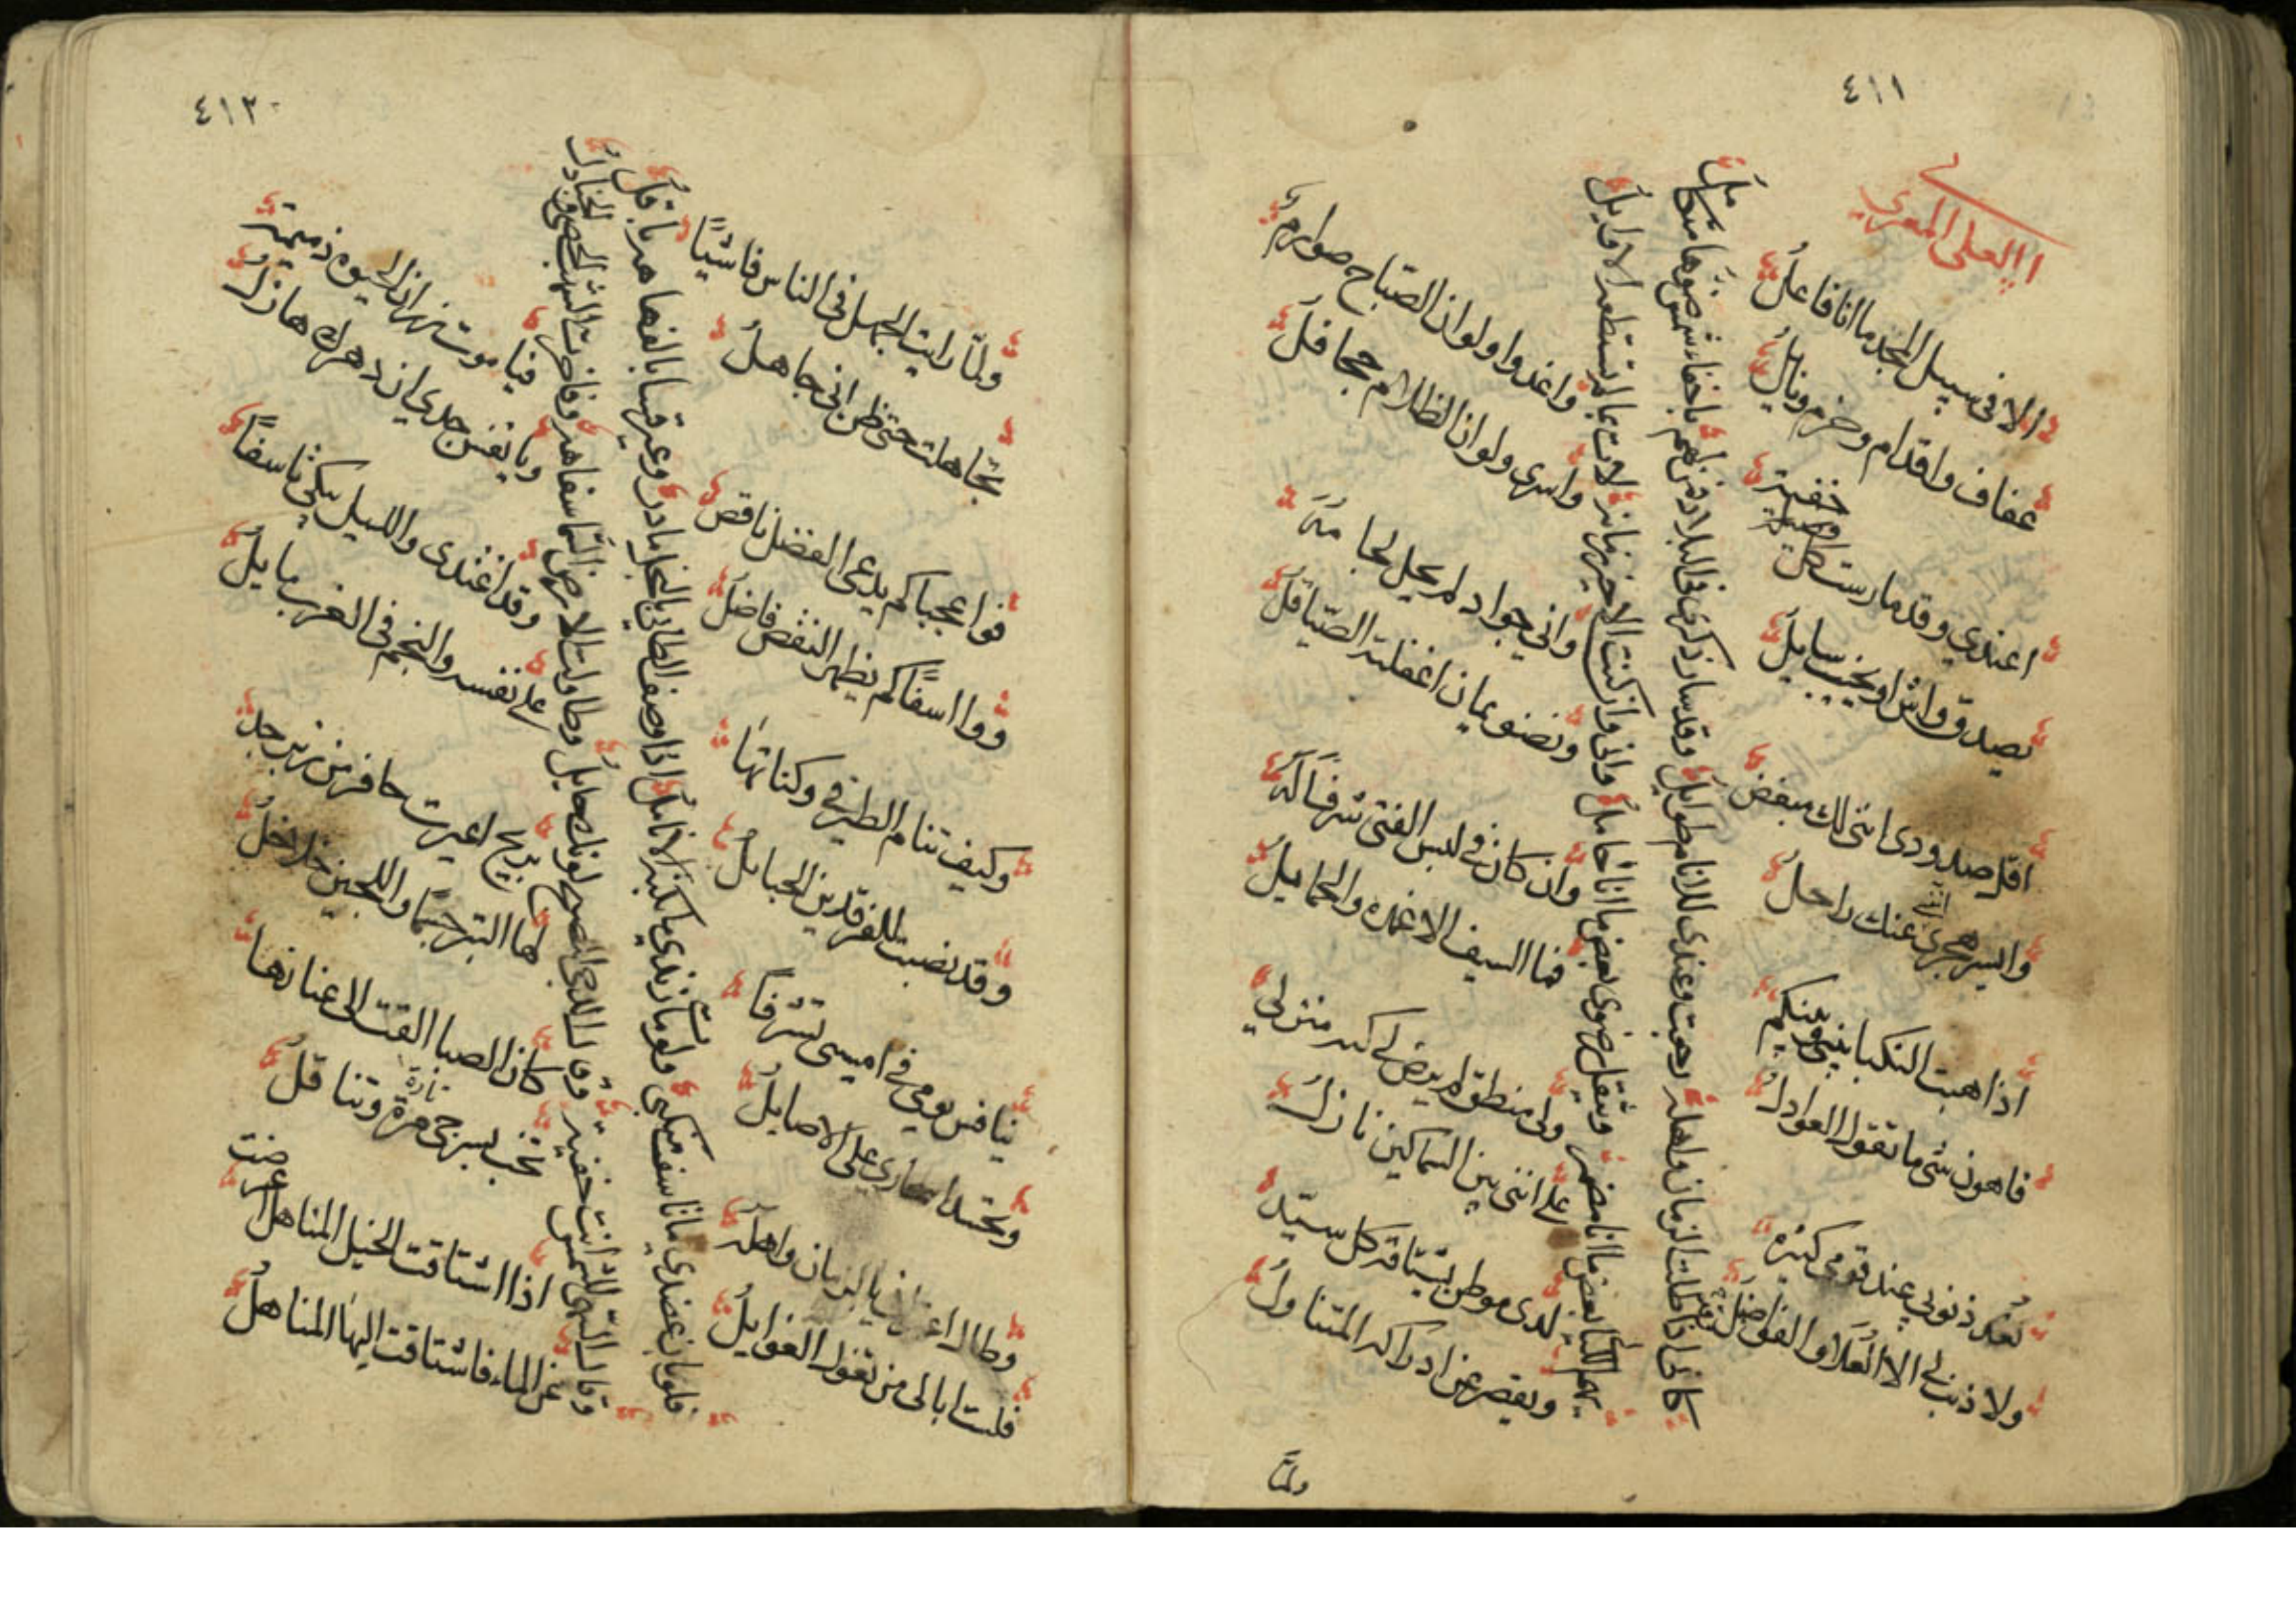 ٤١١
ابي العلى المعري
الا في سبيل المجد ما انا فاعل
عفاف واقدام وحزم ونايل
اعندي وقد مارست كل خفية
يصدق واش او يخيب سايل
اقل صدودي انني لك مبغض
وايسر هجري انني عنك راحل
اذا هبت النكبا بيني وبينكم
فاهون شي ما تقول العوادل
تعد ذنوبي عند قومي كثيرة
ولا ذنب لي الا العلا والفواضل
كاني اذا طلت الزمان واهله رجعت وعندي للانام طوايل
وقد سار ذكري في البلاد فمن لهم باخفاء شمس ضوءها متكامل
يهم الليالي بعض ما انا مضمر ويثقل رضوى بعض ما انا حامل
واني وان كنت الاخير زمانه لات بما لم تستطعه الاوايل
واغدوا ولو ان الصباح صوارم
واسرى ولو ان الظلام جحافل
واني جواد لم يحل لجامه
ونضو يمان اغفلته الصياقل
وان كان في لبس الفتى شرفا له
فما السيف الا غمده والحمايل
ولي منطق لم يرض لي كنه منزلي
على انني بين السماكين نازل
لدى موطن يشتاقه كل سيد
ويقصر عن ادراكه المتناول
ولما
٤١٢
ولما رايت الجهل في الناس فاشيًا
تجاهلت حتى ظن اني جاهل
فوا عجبا كم يدعي الفضل ناقص
ووا اسفًا كم يظهر النقص فاضل
وكيف تنام الطير في وكناتها
وقد نصبت للفرقدين الحبايل
ينافس يومي في امسي تشرفا
وتحسد اسحاري علي الاصايل
وطال اعترافي بالزمان واهله
فلست ابالي من تغول الغوايل
فلو بان عضدي ما تاسف منكبي ولو مات زندي ما بكته الانامل
اذا وصف الطائي بالبخل مادر وعير قسا بالفهاهة باقل
وقال السهى للشمس انت خفية وقال الدجى للصبح لونك حايل
وطاولت الارض السماء سفاهة وفاخرت الشهب الحصى والجنادل
فيا موت زر ان الحيوه ذميمة
ويا نفس جدي ان دهرك هازل
وقد اغتدى والليل يبكي تاسفًا
على نفسه والنجم في الغرب مايل
بريح اعيرت حافر من زبرجد
لها التبر جسما واللجين خلاخل
كان الصبا القت الى عنانها
تخب بسرجي مرة وتناقل
تارة
اذا اشتاقت الخيل المناهل اعرضت
عن الماء فاشتاقت اليها المناهل